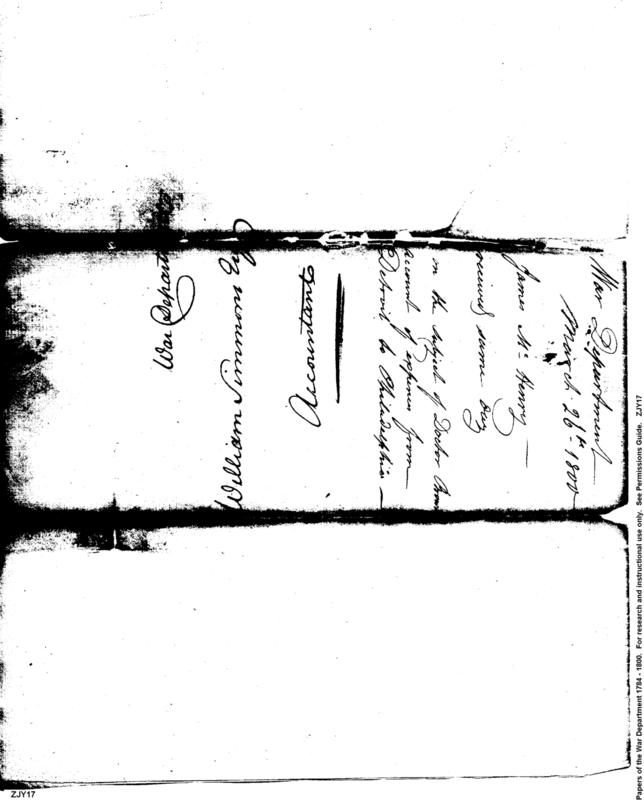 War Department
March 26th 1800
James Mc Henry
received same day
on the subject of Doctor
account of expenses from
Detroit to Philadephia
William Simmons Esq
Accountant
War Department
ZJY17
Papers of the War Department 1784 - 1800. For research and instructional use only. See Permissions Guide. ZJY17